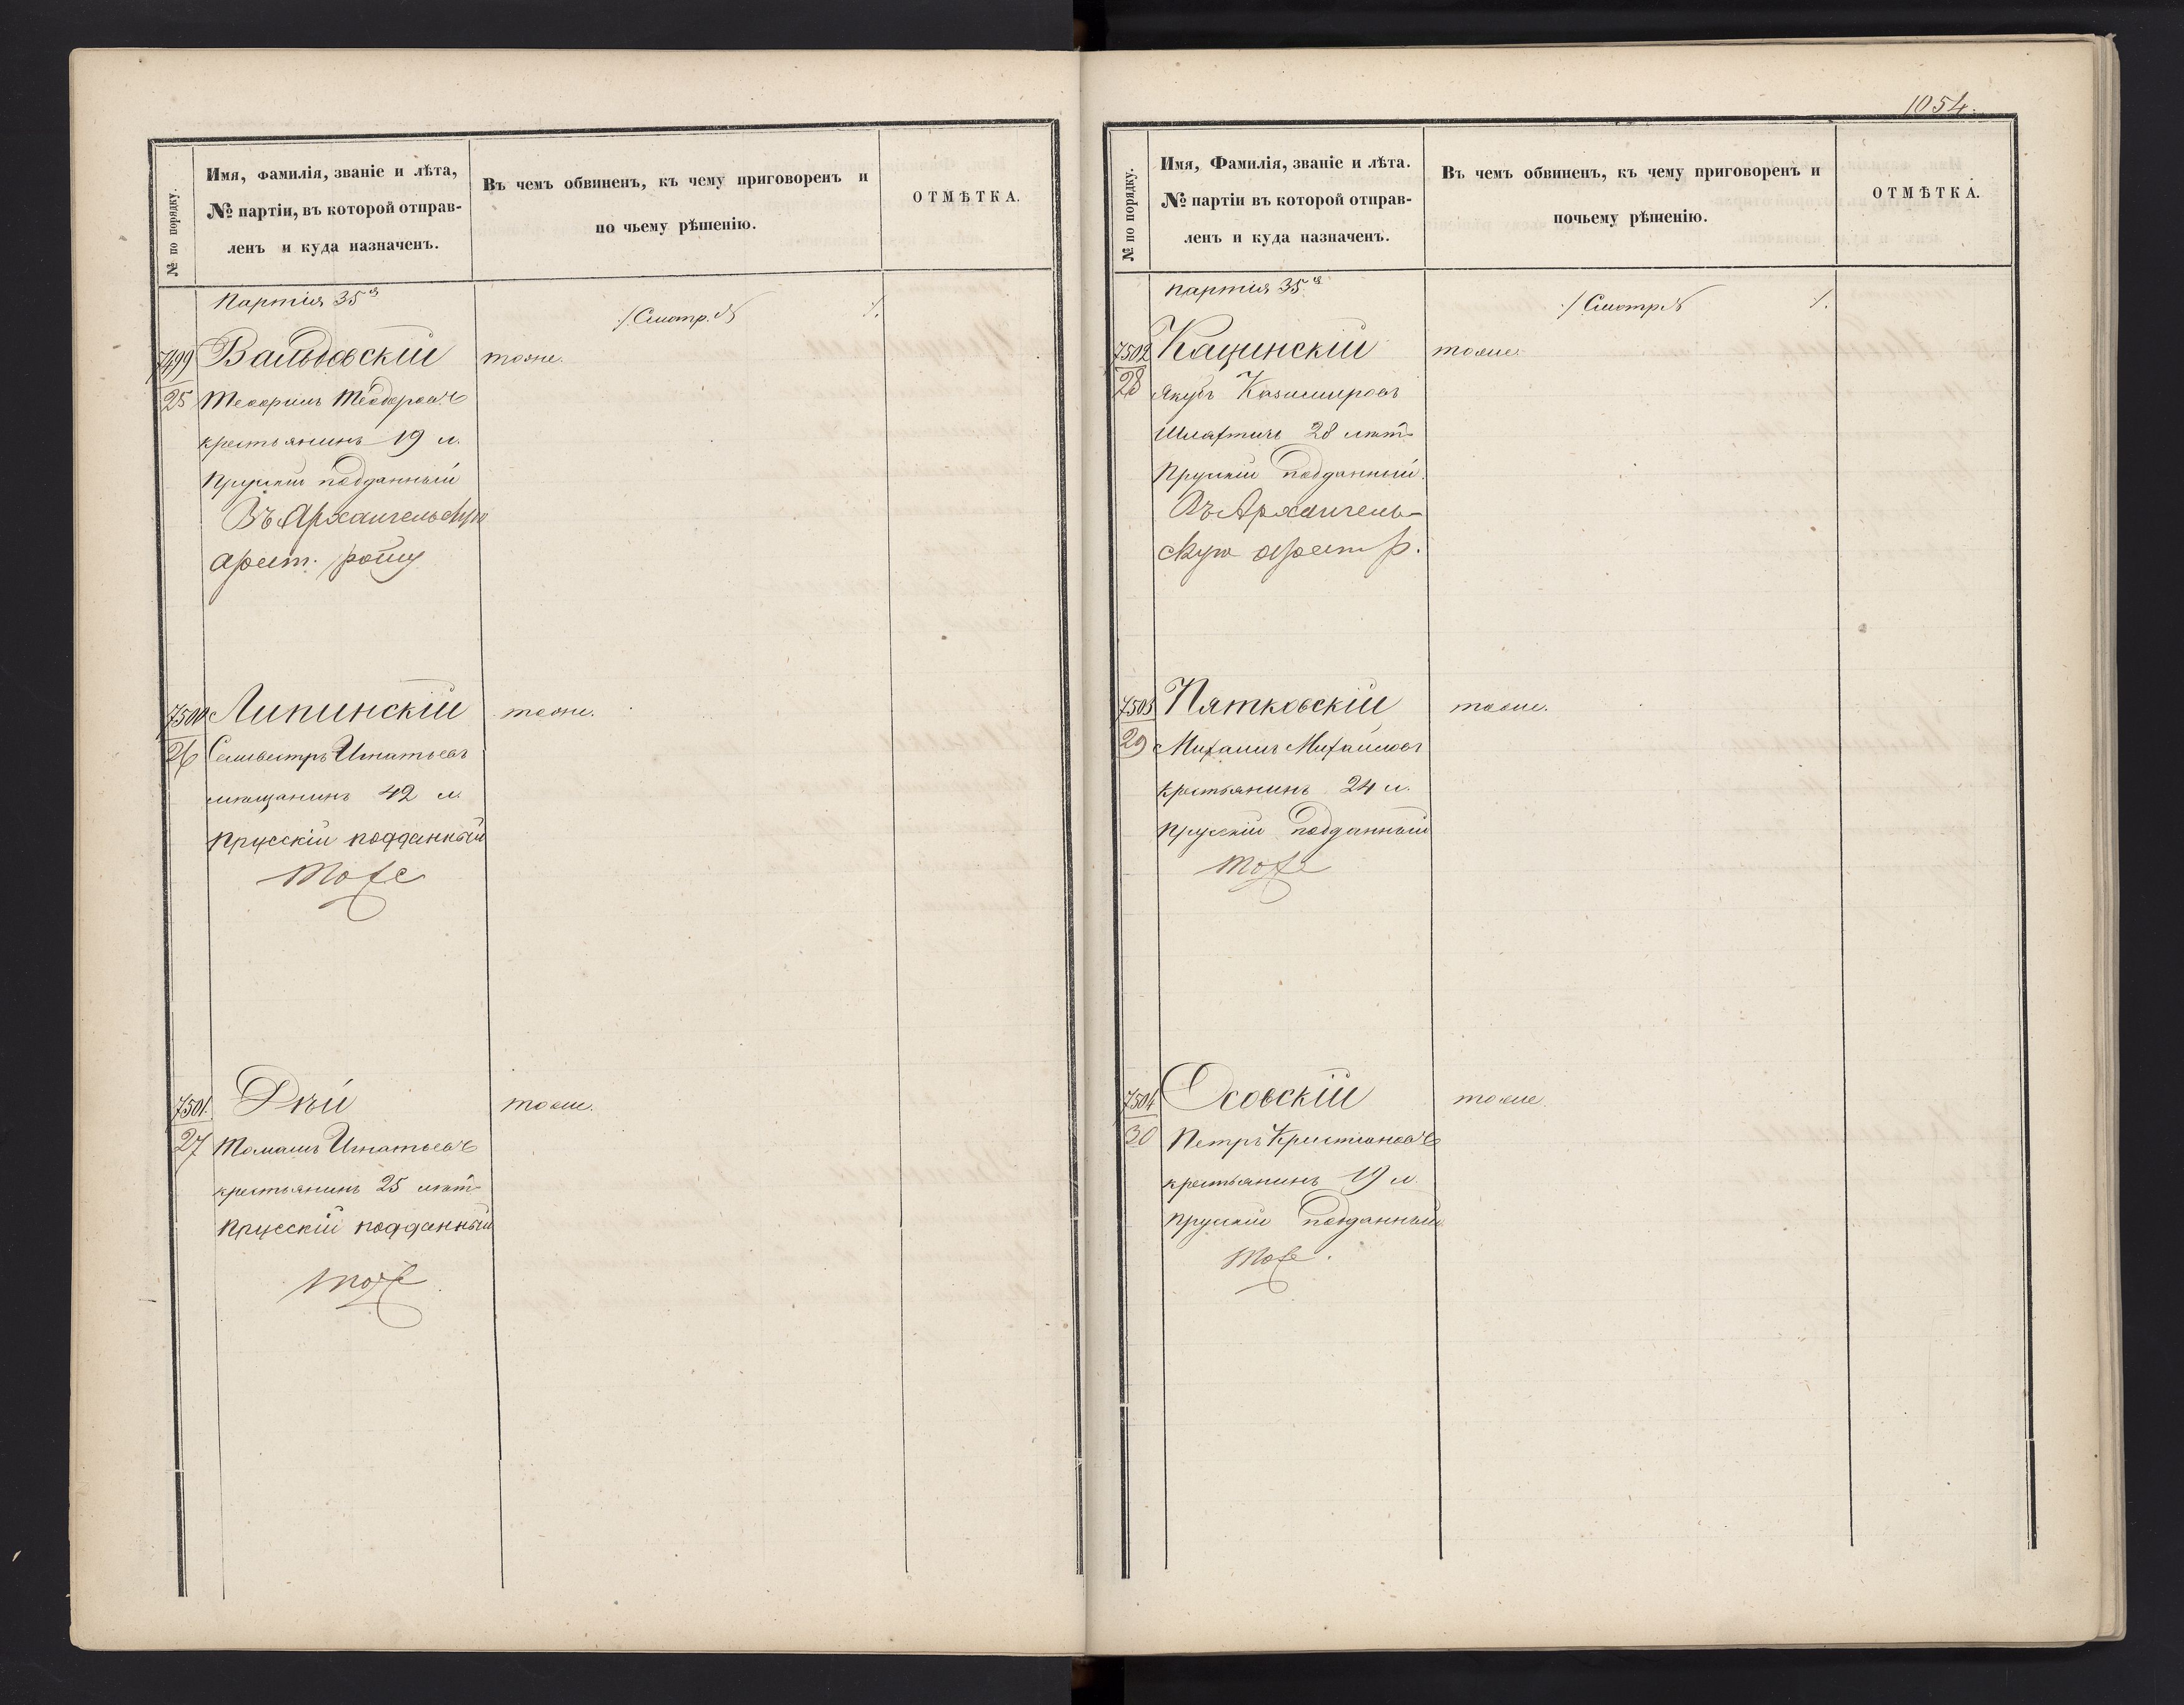 № по порядку.
Имя, Фамилія, званіе и лѣта,
№ партіи, въ которой отправ-
ленъ и куда назначенъ.
Въ чемъ обвиненъ, къ чему приговоренъ и
по чьему рѣшенію.
ОТМѢТКА.
Партія 35я
/Смотр. №
/.
7499
25
Вальдовскій
тоже.
Теодоров.
крестьянинъ 19 л.
Прусскій подданный
Въ Архангельскую
арест. роту
7500
26
Липинскій
тоже.
Сильвестръ Игнатьевъ
мѣщанинъ 42 л.
Прусскій подданный
Тоже
7501.
27
Дѣй
тоже.
Томашъ Игнатьевъ
крестьянинъ 25 лѣтъ
Прусскій подданный
тоже
1054.
№ по порядку.
Имя, Фамилія, званіе и лѣта.
№ партіи въ которой отправ-
ленъ и куда назначенъ.
Въ чемъ обвиненъ, къ чему приговоренъ и
почьему рѣшенію.
ОТМѢТКА.
Партія 35я
/Смотр №
/.
7502
28
Кацинскій
тоже.
Якубъ Казимировъ
Шляхтичъ 28 лѣтъ
Прусскій подданный.
Въ Архангель-
скую арест р.
7503
29
Пятковскій
тоже.
Михаилъ Михайловъ
крестьянинъ 24 л.
Прусскій подданный
тоже
7504
30
Осовскій
тоже.
Петръ Кристіановъ
крестьянинъ 19 л.
Прусскій подданный
Тоже.